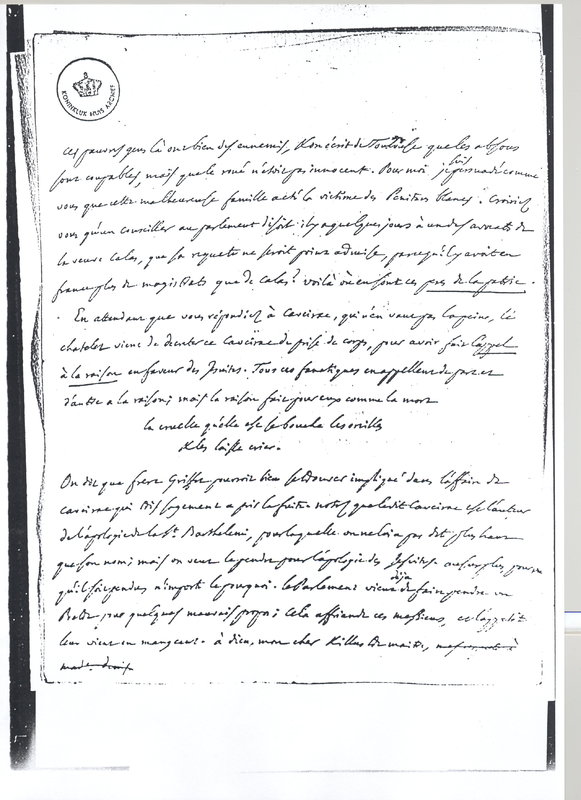 KONINKLIJK HUIS ARCHIEF
ces pauvres gens là ont bien des ennemis, & on écrit de Toulouse que les absous
sont coupables, mais que le roué n'étoit pas innocent. Pour moi je suis persuadé comme
vous que cette malheureuse famille a été la victime des Penitens blancs. Croiriez
vous qu'un conseiller au parlement disoit il y a quelques jours à un des avocats de
la veuve Calas, que sa requete ne seroit point admise, parce qu'il y avoit en
france plus de magistrats que de Calas? voilà où en sont ces peres de la patrie.
En attendant que vous répondiez à Caveirac, qui n'en vaut pas la peine, le
chatelet vient de decreter ce Caveirac de prise de corps, pour avoir fait l'appel
à la raison en faveur des Jesuites. Tous ces fanatiques en appellent de part et
d'autre a la raison; mais la raison fait pour eux comme la mort
la cruelle qu'elle est se bouche les oreilles
& les laisse crier.
On dit que frere Griffet pourroit bien se trouver impliqué dans l'affaire de
Caveirac qui sagement a pris la fuite. notez que ledit Caveirac est l'auteur
de l'apologie de la St. Barthelemi, pour laquelle on ne lui a pas dit plus haut
que son nom; mais on veut le pendre pour l'apologie des Jesuites. au surplus, pourvu
qu'il soit pendu n'importe le pourquoi. le Parlement vient déja de faire pendre un
pour quelques mauvais propos; cela affriande ces messieurs, et l'appetit
leur vient en mangeant. à dieu, mon cher & illustre maitre,